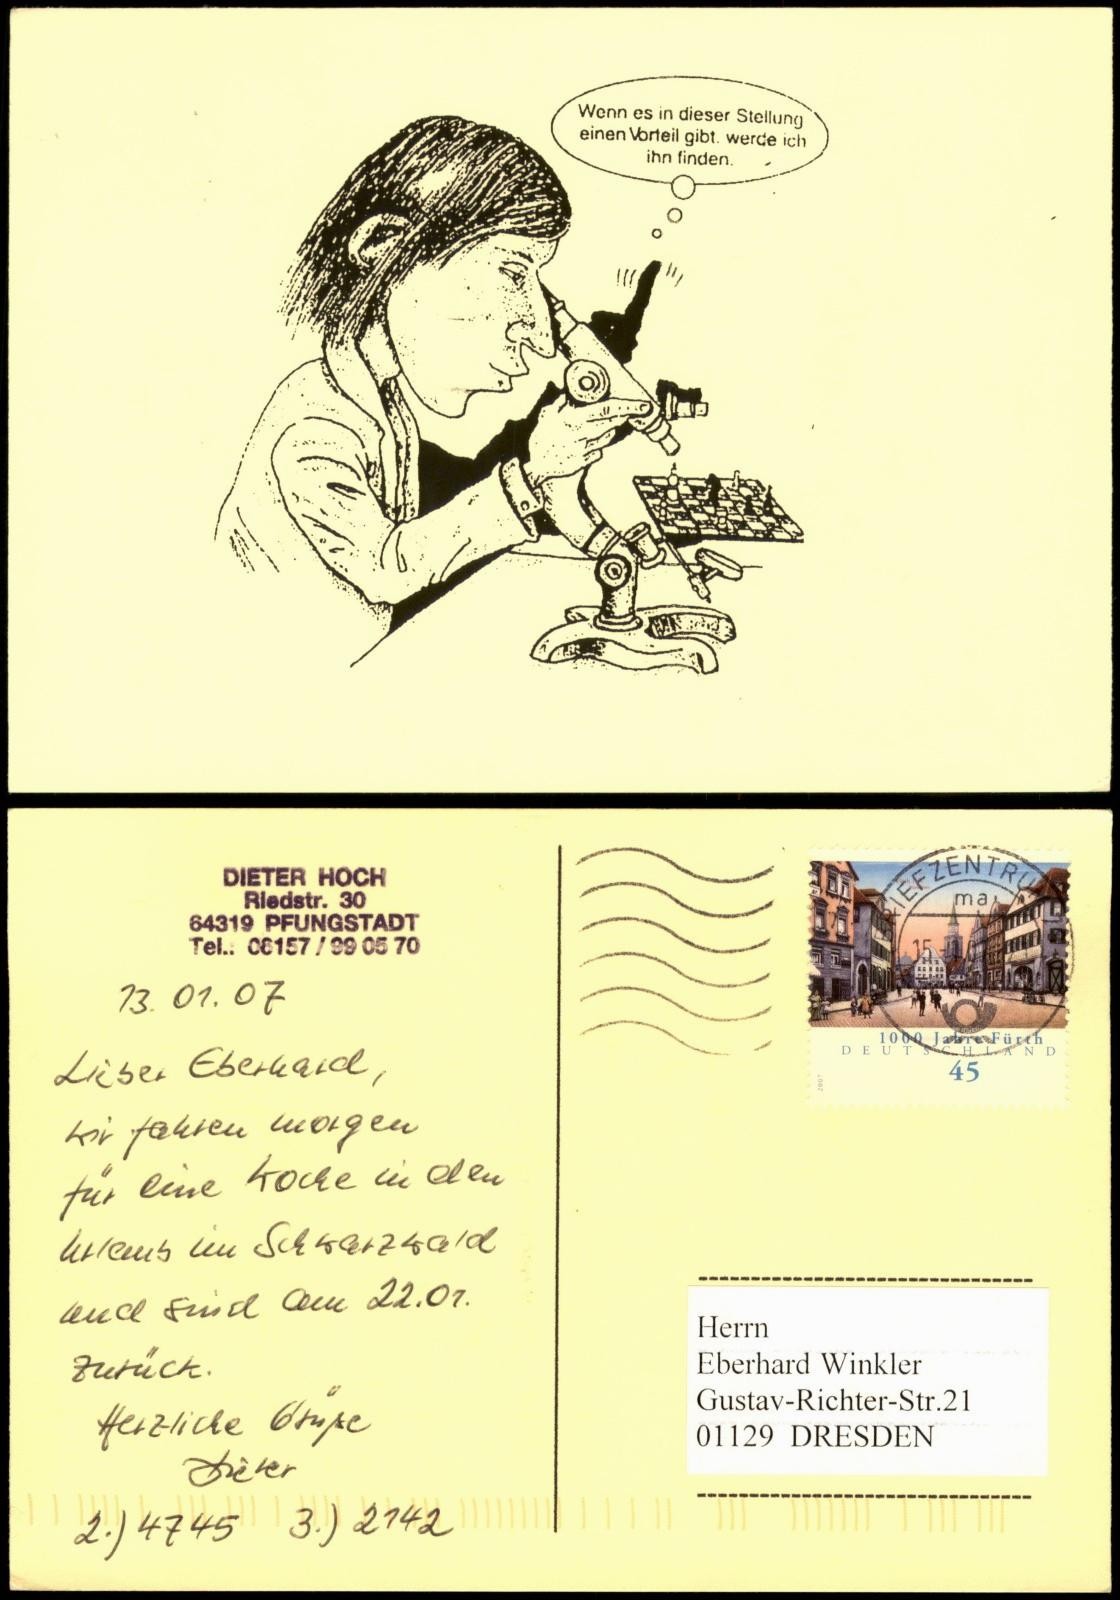 Wenn es in dieser Stellung
einen Vorteil gibt. werde ich
ihn finden.
DIETER HOCH
Riedstr. 30
64319 PFUNGSTADT
Tel.: 06157 / 99 05 70
13.01.07
Lieber Eberhard,
wir fahren morgen
für eine Woche in den
Urlaub im Schwarzwald
und sind am 22.01.
zurück.
Herzliche Grüße
Dieter
2.) 4745 3.) 2142
ma
15
1000 Jahre Fürth
DEUTSCHLAND
45
2007
Herrn
Eberhard Winkler
Gustav-Richter-Str.21
01129 DRESDEN